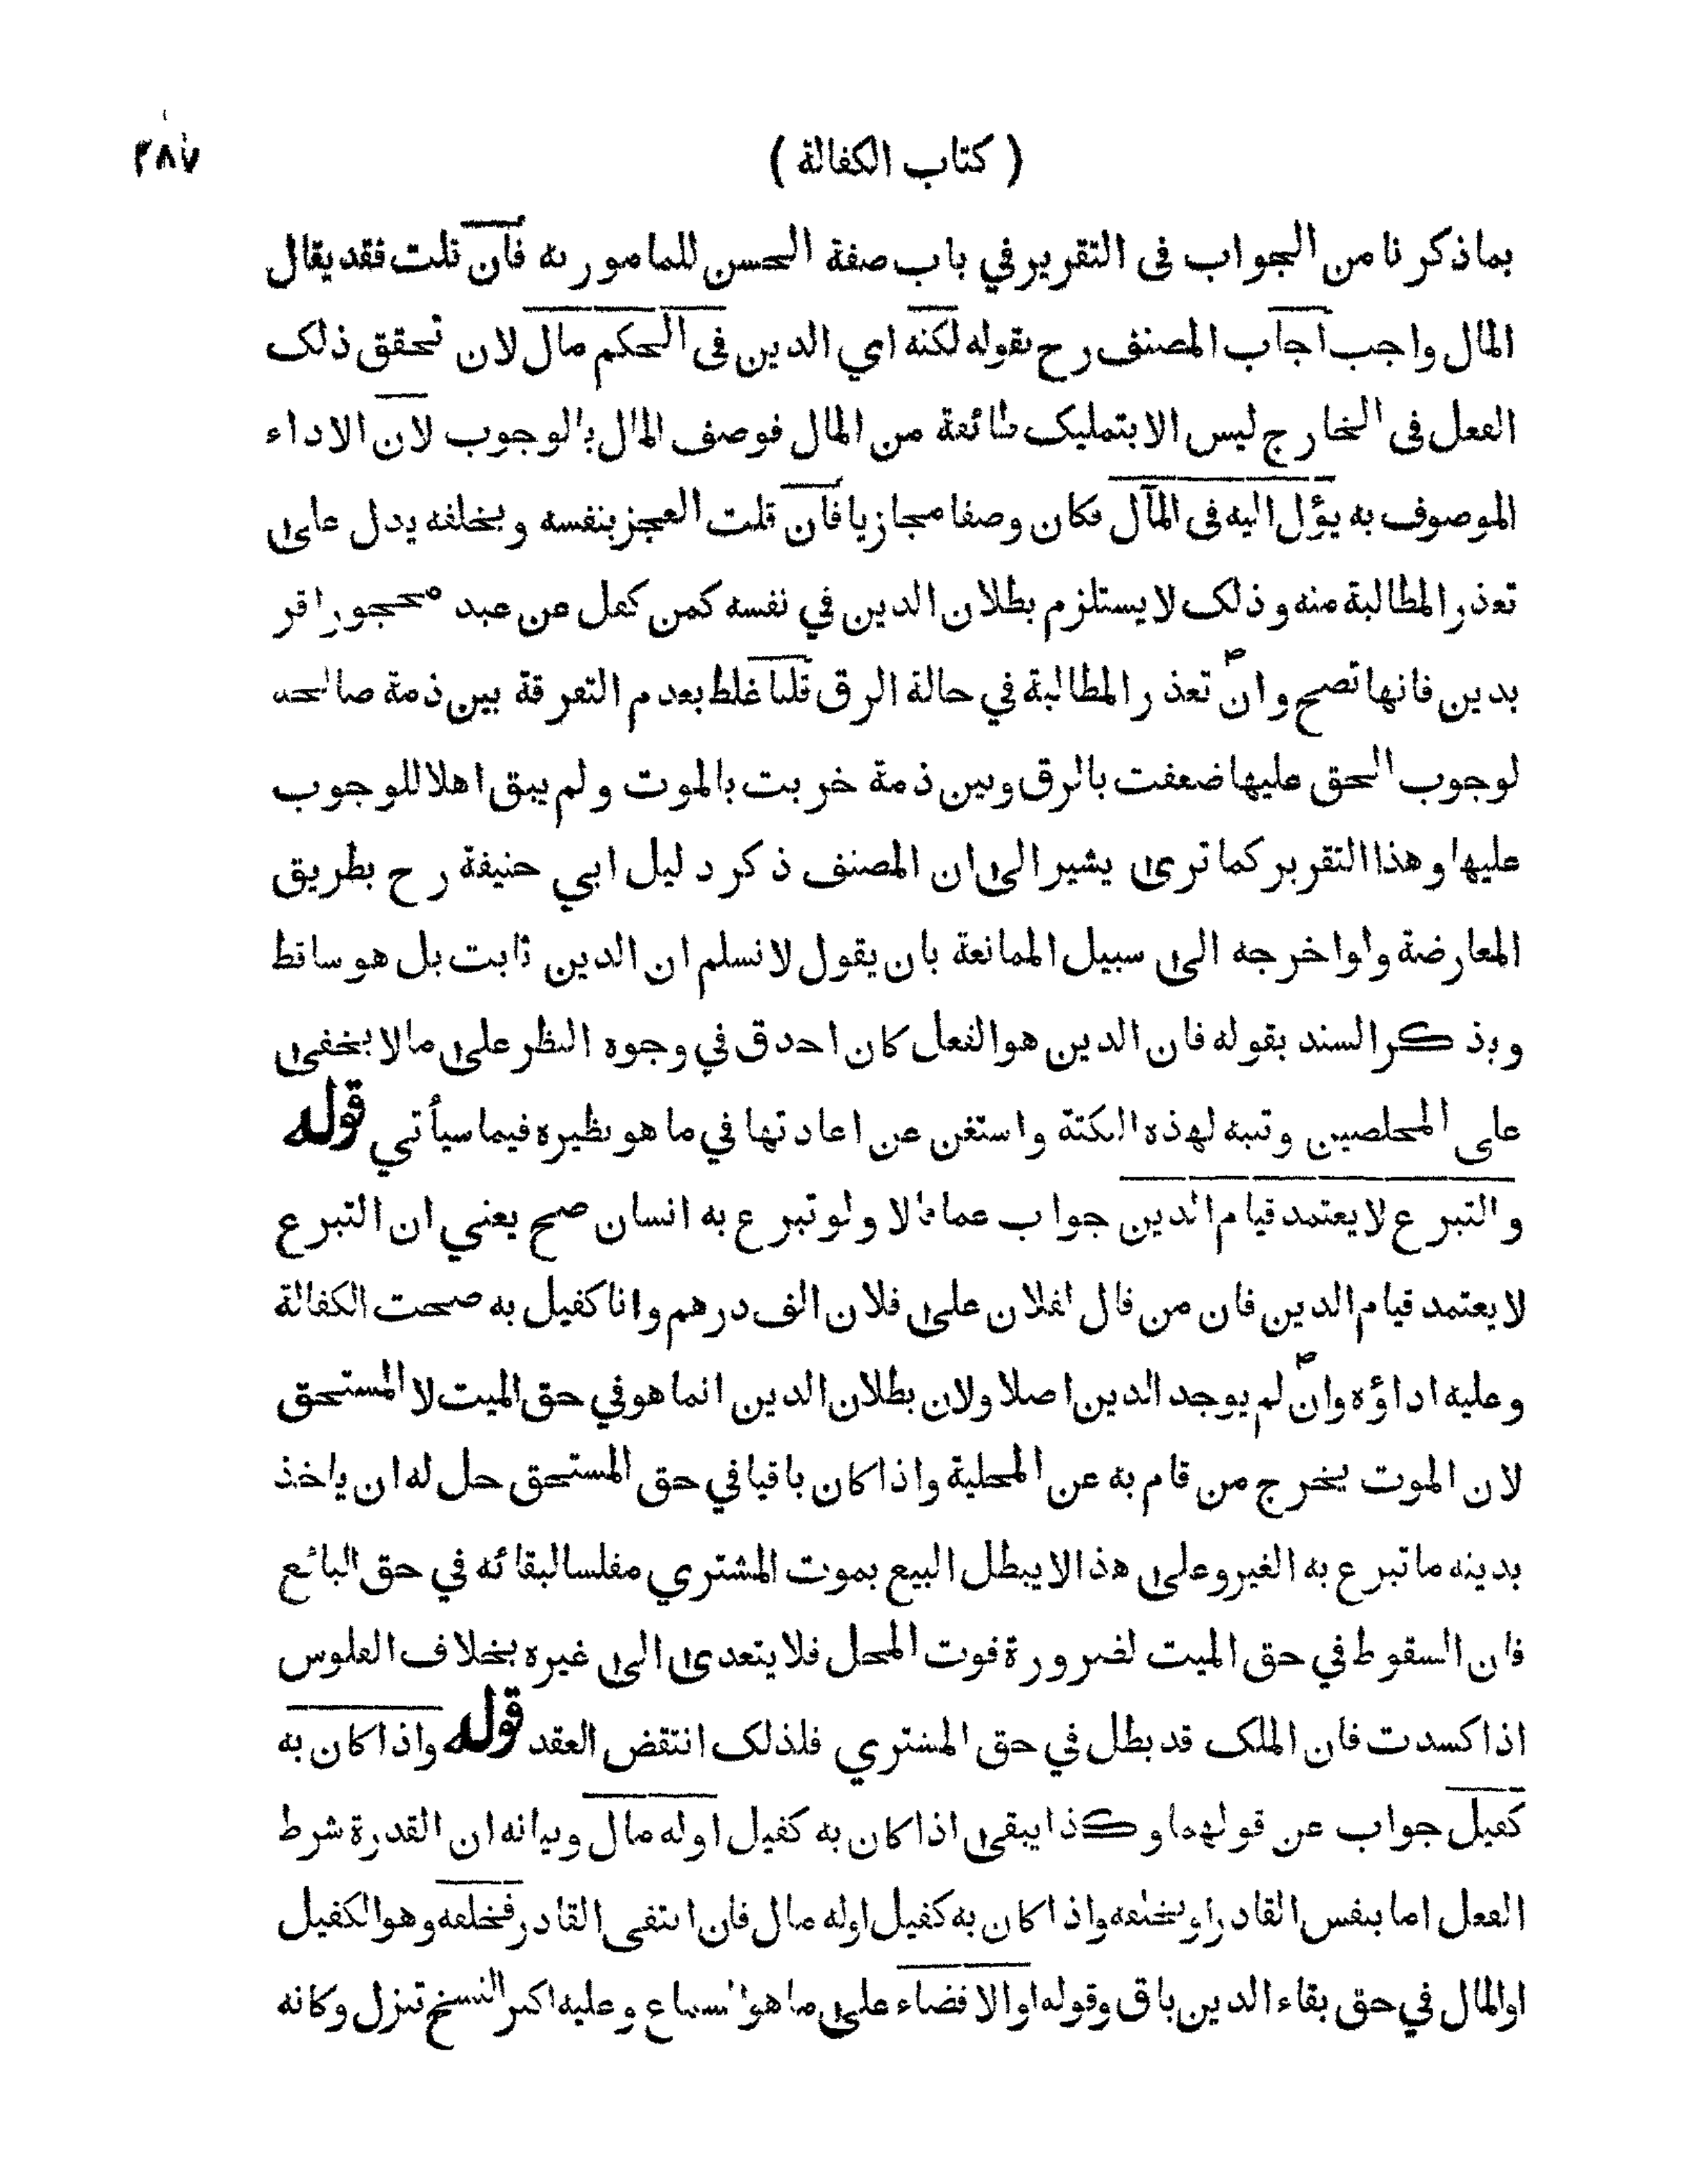 ( كتاب الكفالة ) ٣٨٧
بما ذكرنا من الجواب فى التقرير في باب صفة الحسن للمامور به فان قلت فقد يقال
المال واجب اجاب المصنف رح بقوله لكنه اي الدين فى الحكم مال لان تحقق ذلك
الفعل فى الخارج ليس الا بتمليك طائفة من المال فوصف المال بالوجوب لان الاداء
الموصوف به يؤل اليه فى المآل فكان وصفا مجازيا فان قلت العجز بنفسه وبخلفه يدل على
تعذر المطالبة منه وذلك لا يستلزم بطلان الدين في نفسه كمن كفل عن عبد محجور اقر
بدين فانها تصح وان تعذر المطالبة في حالة الرق قلنا غلط بعدم التفرقة بين ذمة صالحة
لوجوب الحق عليها ضعفت بالرق وبين ذمة خربت بالموت ولم يبق اهلا للوجوب
عليها وهذا التقرير كما ترى يشير الى ان المصنف ذكر دليل ابي حنيفة رح بطريق
المعارضة ولو اخرجه الى سبيل الممانعة بان يقول لا نسلم ان الدين ثابت بل هو ساقط
ويذكر السند بقوله فان الدين هو الفعل كان احدق في وجوه النظر على ما لا يخفى
على المحلصين وتنبه لهذه النكتة واستغن عن اعادتها في ما هو نظيره فيما سيأتي قوله
والتبرع لا يعتمد قيام الدين جواب عما قالا ولو تبرع به انسان صح يعني ان التبرع
لا يعتمد قيام الدين فان من قال لفلان على فلان الف درهم وانا كفيل به صحت الكفالة
وعليه اداؤه وان لم يوجد الدين اصلا ولان بطلان الدين انما هو في حق الميت لا المستحق
لان الموت يخرج من قام به عن المحلية واذا كان باقيا في حق المستحق حل له ان ياخذ
بدينه ما تبرع به الغير وعلى هذا لا يبطل البيع بموت المشتري مفلسا لبقائه في حق البائع
فان السقوط في حق الميت لضرورة فوت المحل فلا يتعدى الى غيره بخلاف الفلوس
اذا كسدت فان الملك قد بطل في حق المشتري فلذلك انتقض العقد قوله واذا كان به
كفيل جواب عن قولهما وكذا يبقى اذا كان به كفيل او له مال وبيانه ان القدرة شرط
الفعل اما بنفس القادر او بخلفه واذا كان به كفيل او له مال فان انتفى القادر فخلفه وهو الكفيل
او المال في حق بقاء الدين باق وقوله او الافضاء على ما هو السماع وعليه اكبر النسخ تنزل وكانه